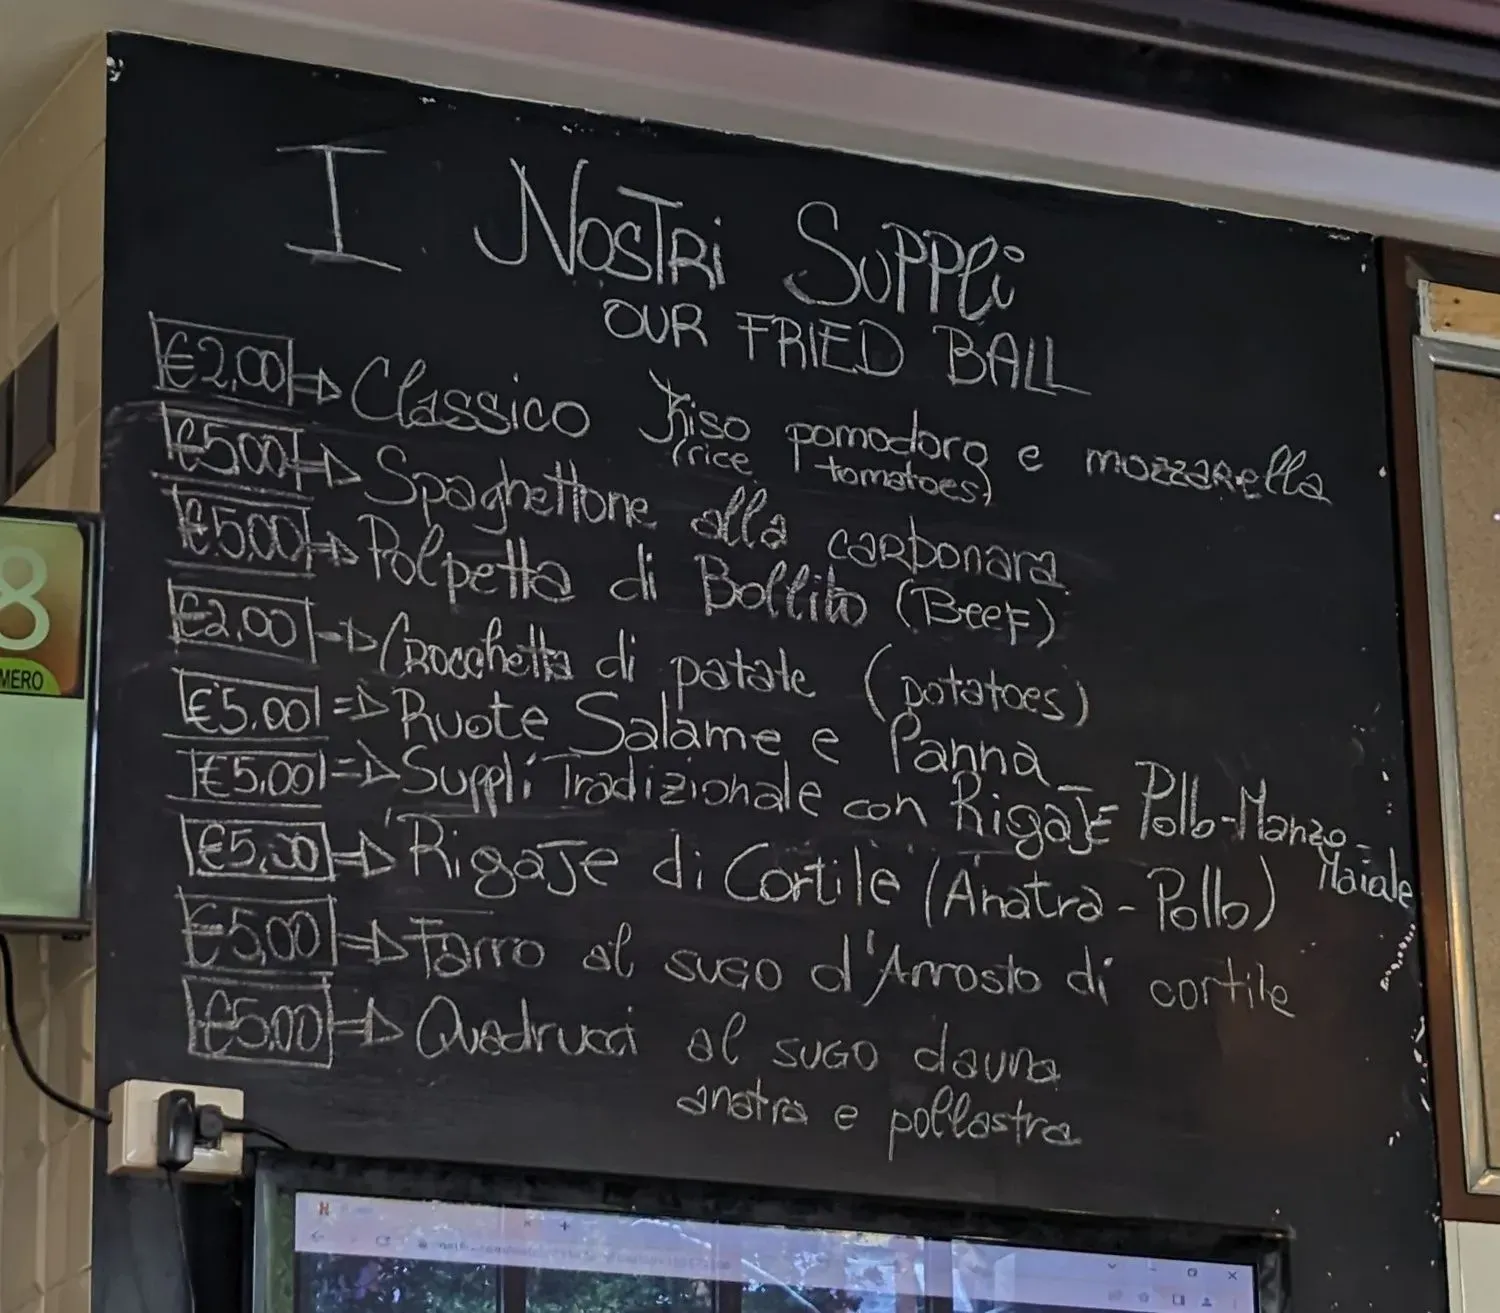 I NOSTRI SUPPLì
OUR FRIED BALL
€2,00 ⇒ Classico Riso pomodoro e mozzarella
(rice tomatoes)
€5,00 ⇒ Spaghettone alla carbonara
€5,00 ⇒ Polpetta di Bollito (Beef)
€2,00 ⇒ Crocchetta di patate (potatoes)
€5,00 ⇒ Ruote Salame e Panna
€5,00 ⇒ Supplì Tradizionale con Rigaje Pollo-Manzo-
Maiale
€5,00 ⇒ Rigaje di Cortile (Anatra-Pollo)
€5,00 ⇒ Farro al sugo d'Arrosto di cortile
€5,00 ⇒ Quadrucci al sugo d'auna
anatra e pollastra
8
MERO